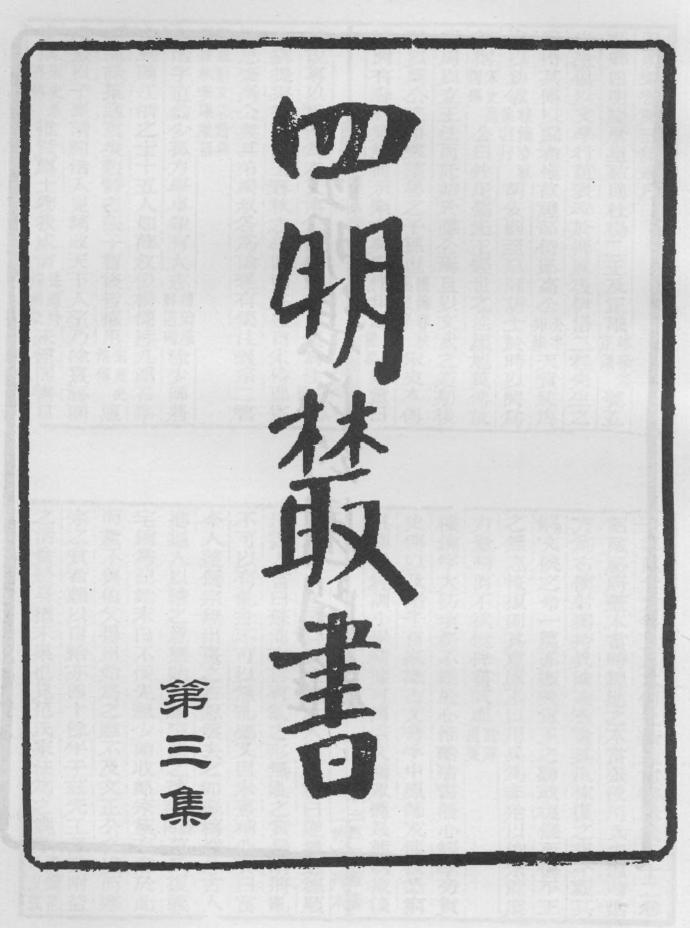 四明叢書
第三集